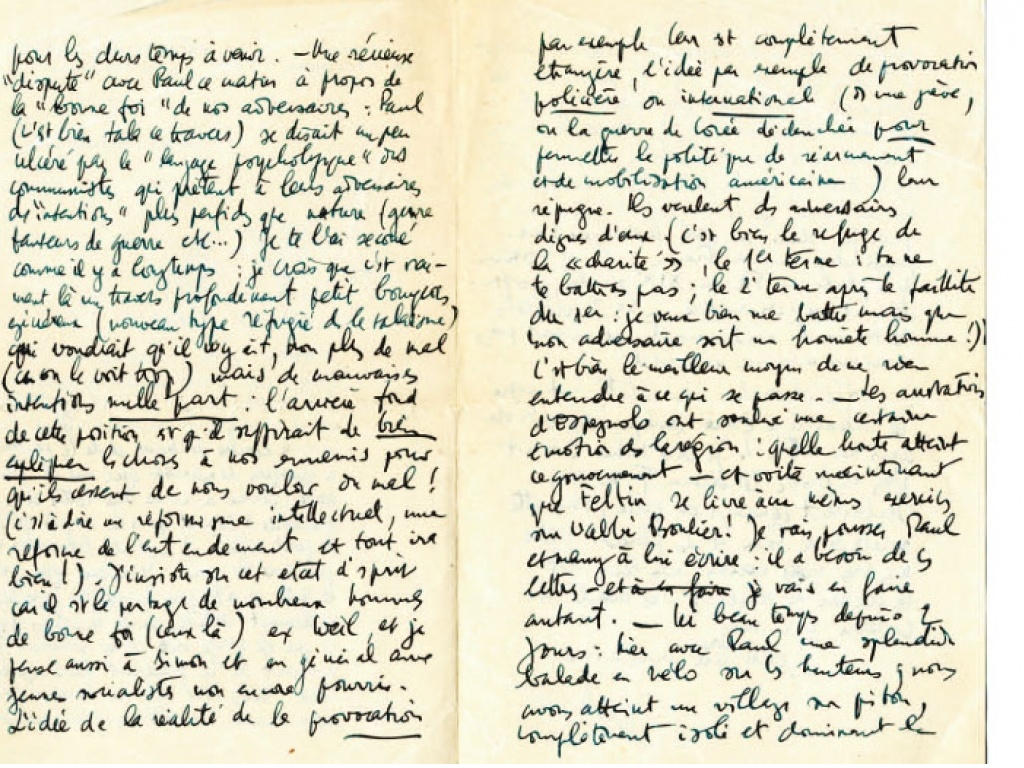 pour les durs temps à venir. — Une sérieuse
"dispute" avec Paul ce matin à propos de
la "bonne foi" de nos adversaires : Paul
(c'est bien là ce travers) se disait un peu
ulcéré par le "langage psychologique" des
communistes qui prêtent à leurs adversaires
des "intentions" plus perfides que nature (genre
fauteurs de guerre etc...) Je te l'ai secoué
comme il y a longtemps : je crois que c'est vrai-
ment là un travers profondément petit bourgeois
généreux (nouveau type réfugié de le
qui voudrait qu'il n'y ait, non plus de mal
(ça on le voit trop) mais de mauvaises
intentions nulle part : l'arrière fond
de cette position est qu'il suffirait de bien
expliquer les choses à nos ennemis pour
qu'ils cessent de nous vouloir du mal !
(c'est à dire un réformisme intellectuel, une
réforme de l'entendement et tout ira
bien !). J'insiste sur cet état d'esprit
car il est le partage de nombreux hommes
de bonne foi (ceux là) ex Weil, et je
pense aussi à Simon et en général aux
jeunes socialistes non encore pourris.
L'idée de la réalité de la provocation
par exemple leur est complètement
étrangère, l'idée par exemple de provocation
policière ou internationale (ds une grève,
ou la guerre de Corée déclenchée pour
permettre la politique de réarmement
et de mobilisation américaine) leur
répugne. Ils veulent des adversaires
dignes d'eux (c'est bien le refuge de
la « charité », le 1er terme : tu ne
te battras pas ; le 2e terme après la faillite
du 1er : je veux bien me battre mais que
mon adversaire soit un honnête homme !)
C'est bien le meilleur moyen de ne rien
entendre à ce qui se passe. — Les arrestations
d'Espagnols ont soulevé une certaine
émotion ds la région : quelle honte atteint
ce gouvernement — et voilà maintenant
que Feltin se livre aux mêmes exercices
sur l'abbé Boulier ! Je vais pousser Paul
et many à lui écrire : il a besoin de ces
lettres – et à en faire je vais en faire
autant. — Ici beau temps depuis 2
jours : hier avec Paul une splendide
balade en vélo sur les hauteurs ; nous
avons atteint un village sur piton,
complètement isolé et dominant la